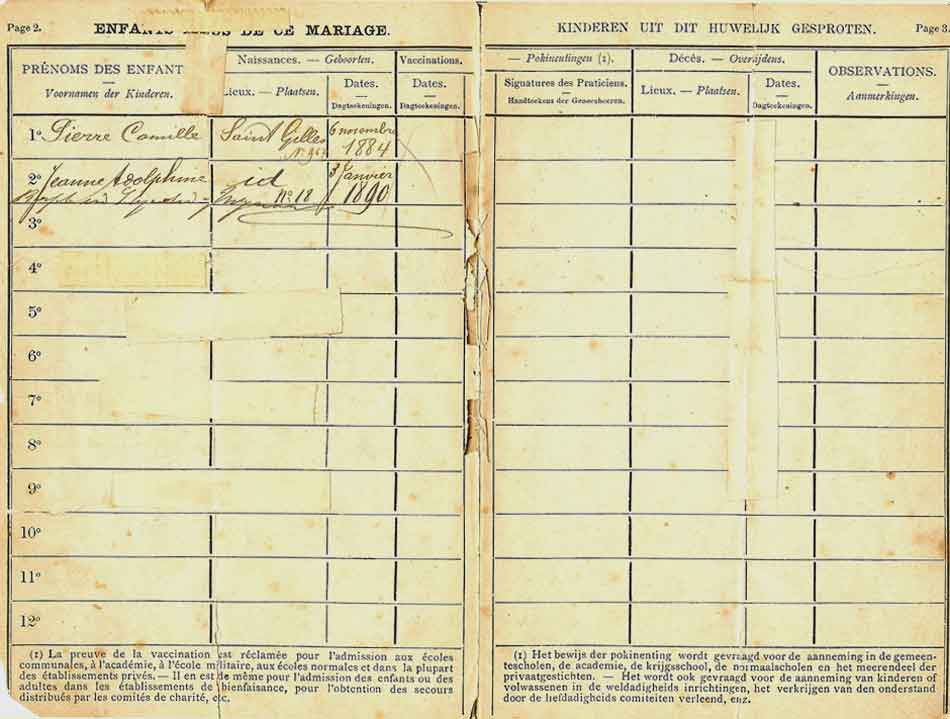 Page 2.
ENFANTS DE CE MARIAGE.
PRÉNOMS DES ENFANT
Voornamen der Kinderen.
Naissances. — Geboorten.
Lieux. — Plaatsen.
Dates.
Dagteekeningen.
Vaccinations.
Dates.
Dagteekeningen.
1º Pierre Camille Saint Gilles 6 novembre
1884
2º Jeanne Adolphine id 3 Janvier
Nº 18 1890
3º
4º
5º
6º
7º
8º
9º
10º
11º
12º
(1) La preuve de la vaccination est réclamée pour l'admission aux écoles
communales, à l'académie, à l'école militaire, aux écoles normales et dans la plupart
des établissements privés. — Il en est de même pour l'admission des enfants ou des
adultes dans les établissements de bienfaisance, pour l'obtention des secours
distribués par les comités de charité, etc.
KINDEREN UIT DIT HUWELIJK GESPROTEN.
Page 3.
— Pokinentingen (1).
Signatures des Praticiens.
Handteekens der Geneesheeren.
Décès. — Overlijdens.
Lieux. — Plaatsen.
Dates.
Dagteekeningen.
OBSERVATIONS.
Aanmerkingen.
(1) Het bewijs der pokinenting wordt gevraagd voor de aanneming in de gemeen-
tescholen, de academie, de krijgsschool, de normaalscholen en het meerendeel der
privaatgestichten. — Het wordt ook gevraagd voor de aanneming van kinderen of
volwassenen in de weldadigheids inrichtingen, het verkrijgen van den onderstand
door de liefdadigheids comiteiten verleend, enz.